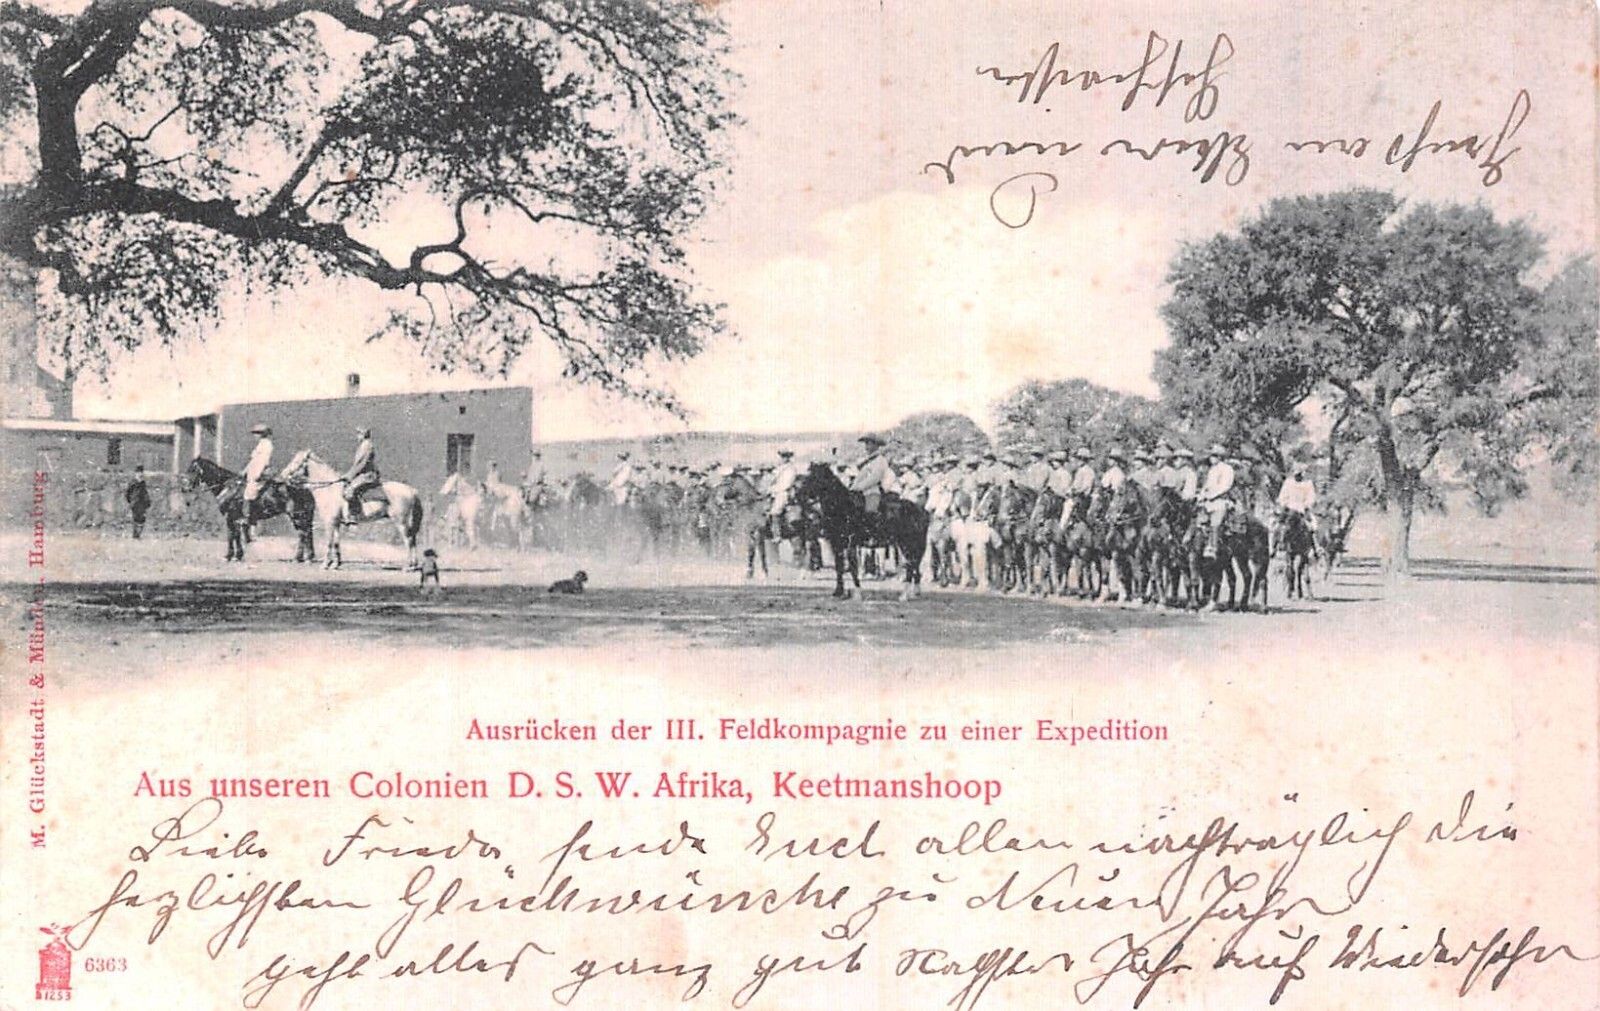 Gruß an Eltern und
Geschwister
M. Glückstadt & Münden, Hamburg
Ausrücken der III. Feldkompagnie zu einer Expedition
Aus unseren Colonien D. S. W. Afrika, Keetmanshoop
Liebe Frieda, sende Euch allen nachträglich die
herzlichsten Glückwünsche zu Neuen Jahr
geht alles ganz gut Nächstes Jahr auf Wiedersehn
6363
1253